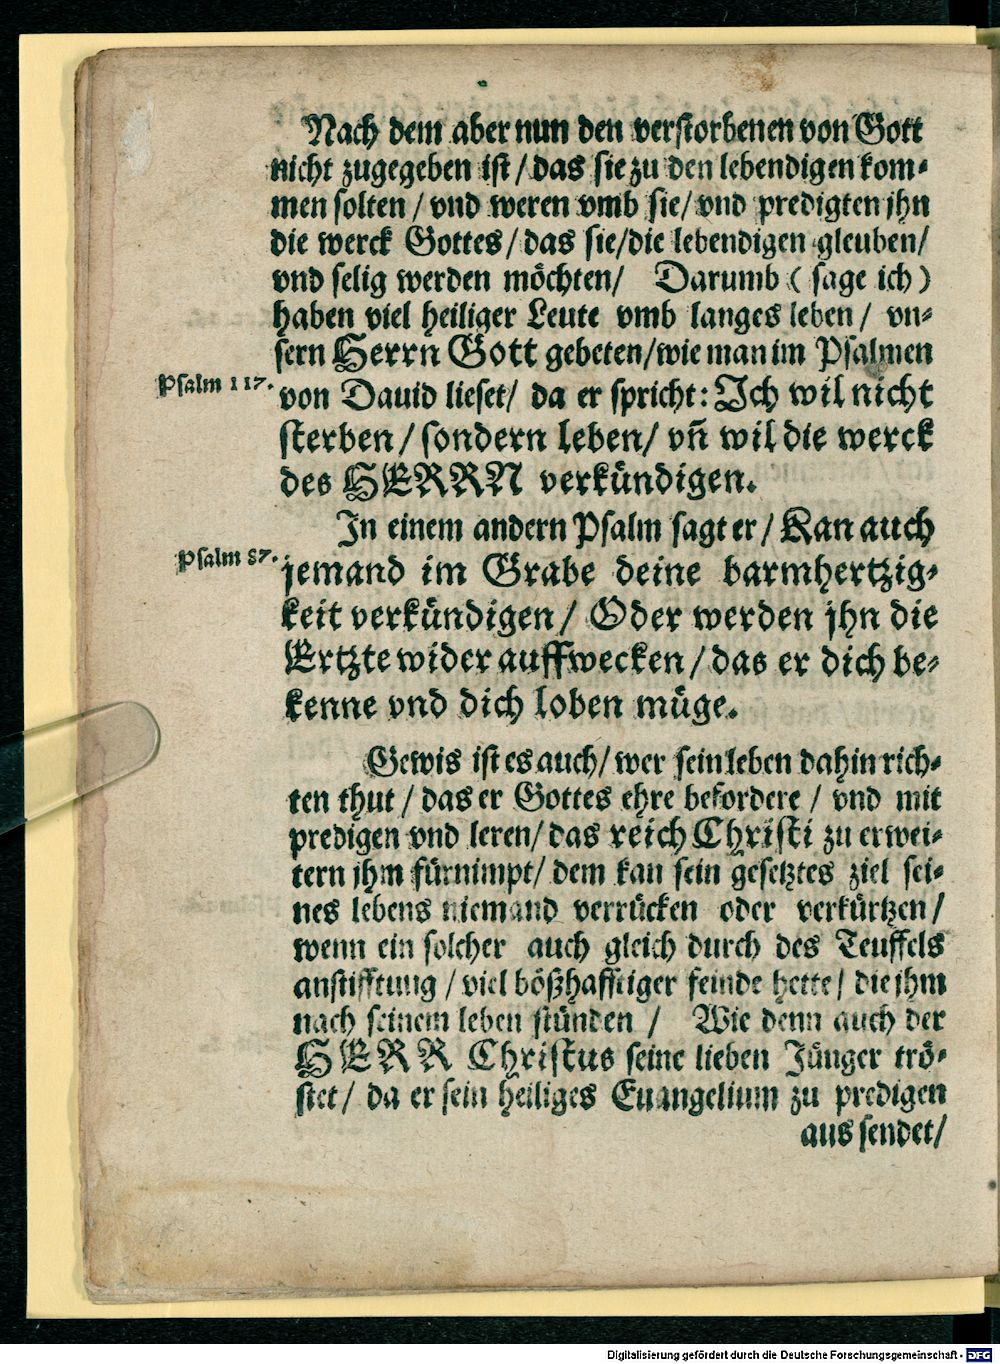 Nach dem aber nun den verstorbenen von Gott
nicht zugegeben ist / das sie zu den lebendigen kom⸗
men solten / vnd weren vmb sie / vnd predigten jhn
die werck Gottes / das sie / die lebendigen gleuben /
vnd selig werden möchten / Darumb ( sage ich )
haben viel heiliger Leute vmb langes leben / vn⸗
sern Herrn Gott gebeten / wie man im Psalmen
Psalm 117.
von Dauid lieset / da er spricht: Ich wil nicht
sterben / sondern leben / vn̄ wil die werck
des HERRN verkündigen.
In einem andern Psalm sagt er / Kan auch
Psalm 87.
jemand im Grabe deine barmhertzig⸗
keit verkündigen / Oder werden jhn die
Ertzte wider auffwecken / das er dich be⸗
kenne vnd dich loben müge.
Gewis ist es auch / wer sein leben dahin rich⸗
ten thut / das er Gottes ehre befordere / vnd mit
predigen vnd leren / das reich Christi zu erwei⸗
tern jhm fürnimpt / dem kan sein gesetztes ziel sei⸗
nes lebens niemand verrücken oder verkürtzen /
wenn ein solcher auch gleich durch des Teuffels
anstifftung / viel bößhafftiger feinde hette / die jhm
nach seinem leben stünden / Wie denn auch der
HERR Christus seine lieben Jünger trö⸗
stet / da er sein heiliges Euangelium zu predigen
aus sendet /
Digitalisierung gefördert durch die Deutsche Forschungsgemeinschaft - DFG